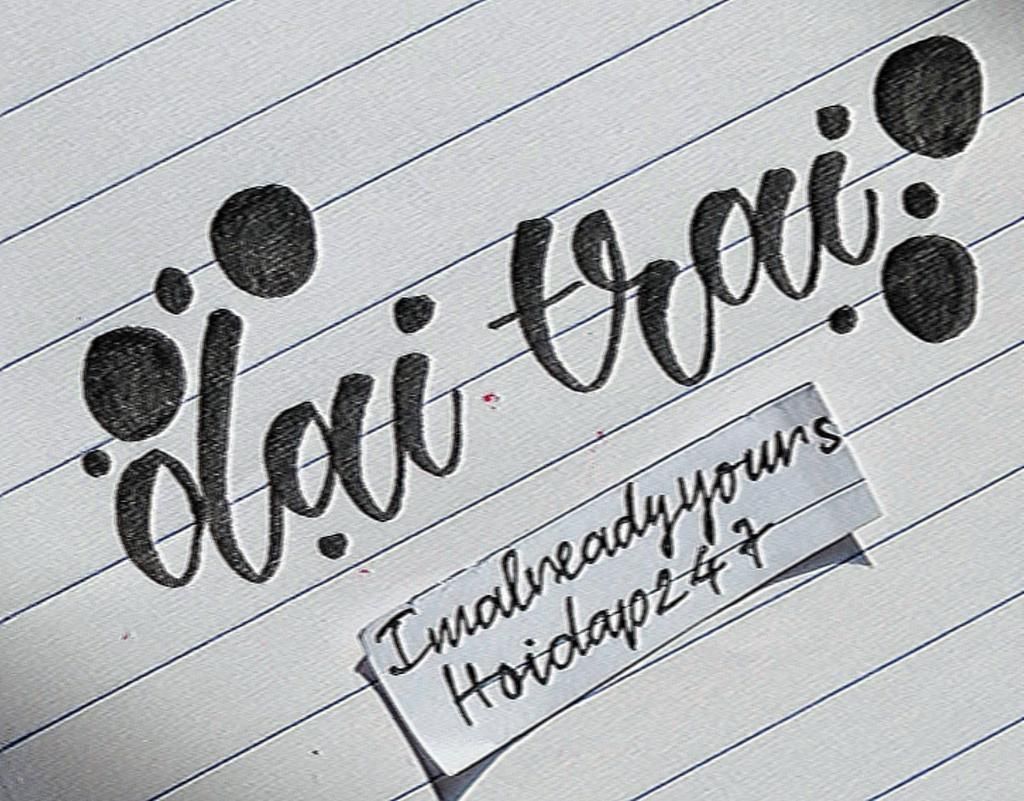 dại trai
Imalreadyyours
Hoidap247